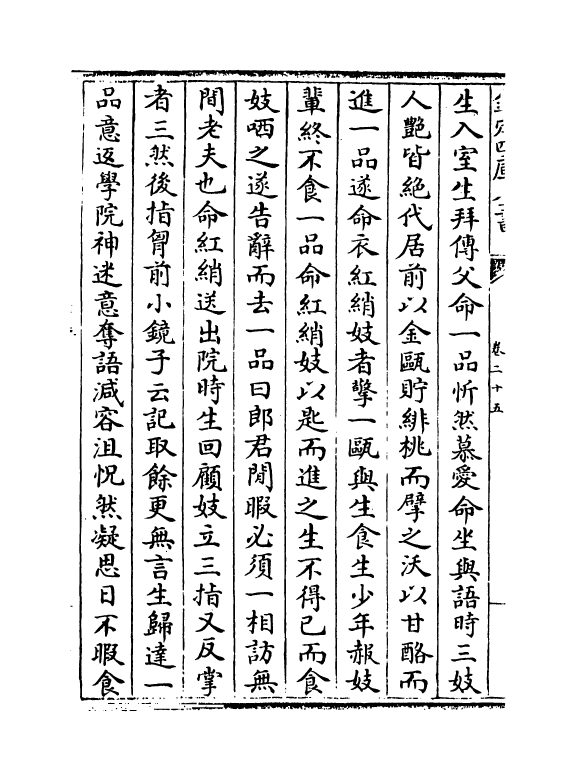 生入室生拜傳父命一品忻然慕愛命坐與語時三妓
人艷皆絕代居前以金甌貯緋桃而擘之沃以甘酪而
進一品遂命衣紅綃妓者擎一甌與生食生少年赧妓
輩終不食一品命紅綃妓以匙而進之生不得已而食
妓哂之遂告辭而去一品曰郎君閒暇必須一相訪無
間老夫也命紅綃送出院時生回顧妓立三指又反掌
者三然後指胷前小鏡子云記取餘更無言生歸達一
品意返學院神迷意奪語減容沮怳然凝思日不暇食
卷二十五